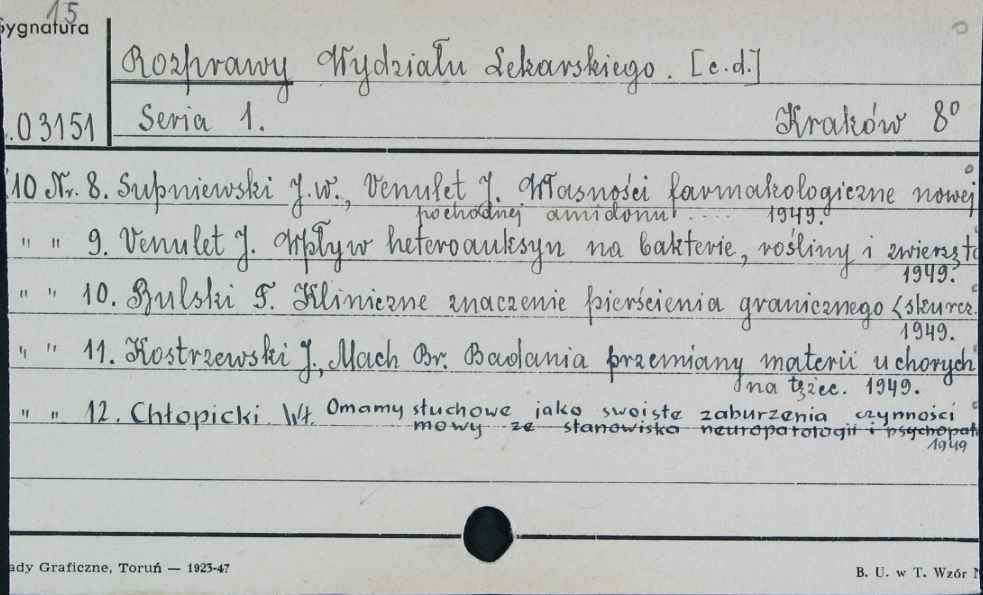 15
Sygnatura
Rozprawy Wydziału Lekarskiego. [c.d.]
03151 Seria 1. Kraków 8°
10 Nr. 8. Supniewski J.W., Venulet J. Własności farmakologiczne nowej
pochodnej amidonu .... 1949.
" " 9. Venulet J. Wpływ heteroauksyn na bakterie, rośliny i zwierzęta
1949.
" " 10. Bulski F. Kliniczne znaczenie pierścienia granicznego (skurcz.
1949.
" " 11. Kostrzewski J., Mach Br. Badania przemiany materii u chorych
na tężec. 1949.
" " 12. Chłopicki Wł. Omamy słuchowe jako swoiste zaburzenia czynności
mowy ze stanowiska neuropatologii i psychopat
1949
ady Graficzne, Toruń — 1923-47
B. U. w T. Wzór